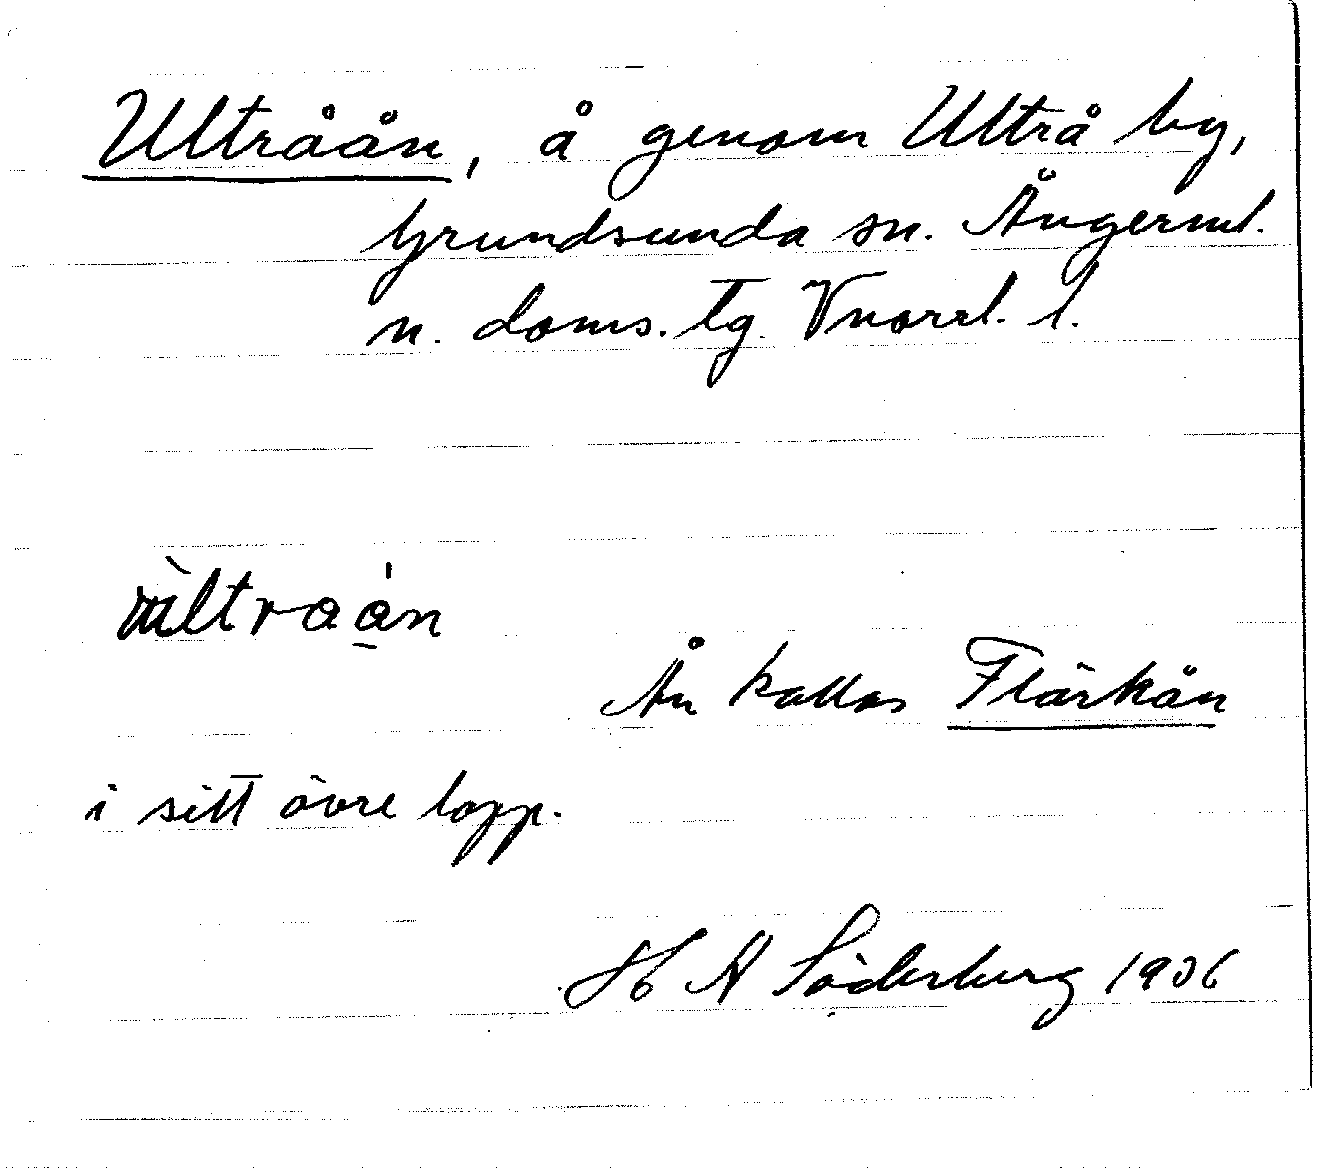 Ultråån, å genom Ultrå by,
Grundsunda sn. Ångerml.
n. doms. tg. Vnorrl. l.
ùltroa̍n
Ån kallas Flärkån
i sitt övre lopp.
H A Söderberg 1936